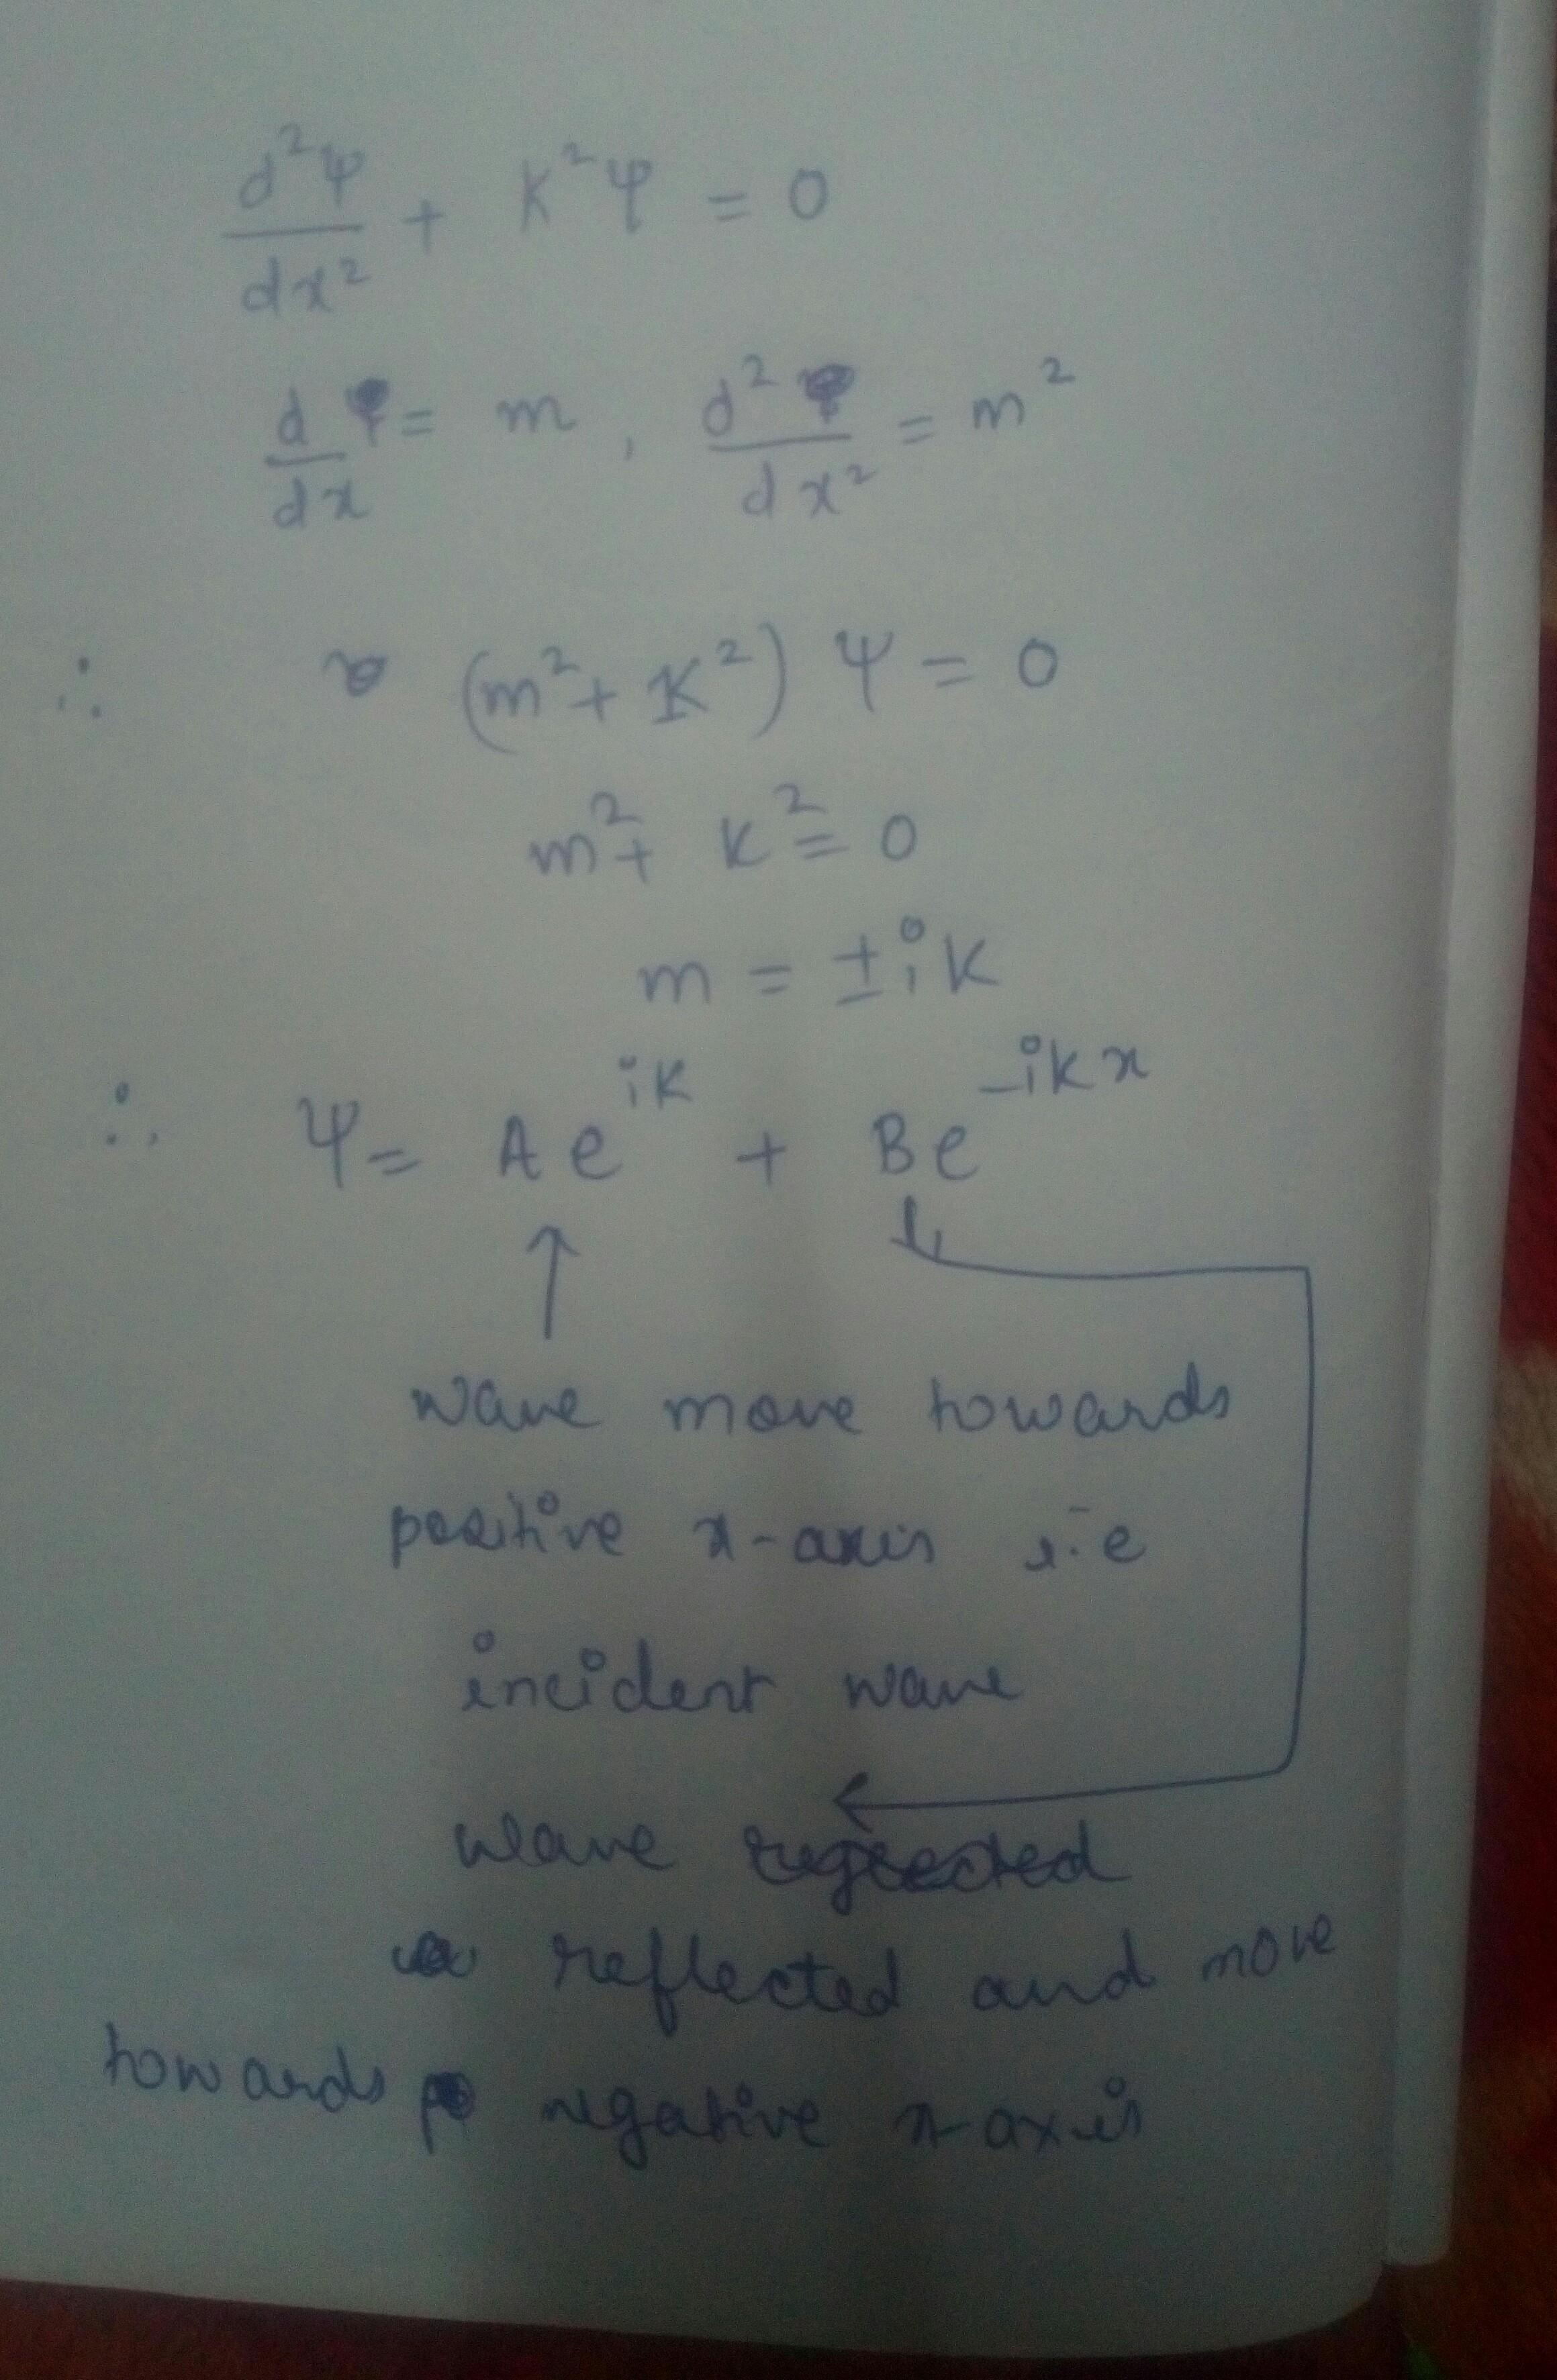 d²ψ/dx² + K²ψ = 0
d/dx ψ = m , d²ψ/dx² = m²
∴ (m² + K²) ψ = 0
m² + K² = 0
m = ± iK
∴ ψ = A e^{iK} + B e^{-ikx}
wave move towards
positive x-axis i.e
incident wave
wave
reflected and move
towards negative x-axis